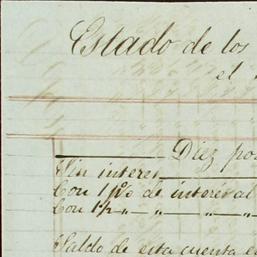 Estado de los
el
Diez por
Sin interes
Con 1 p% de interes al
Con 1½ " " " "
Saldo de esta cuenta e